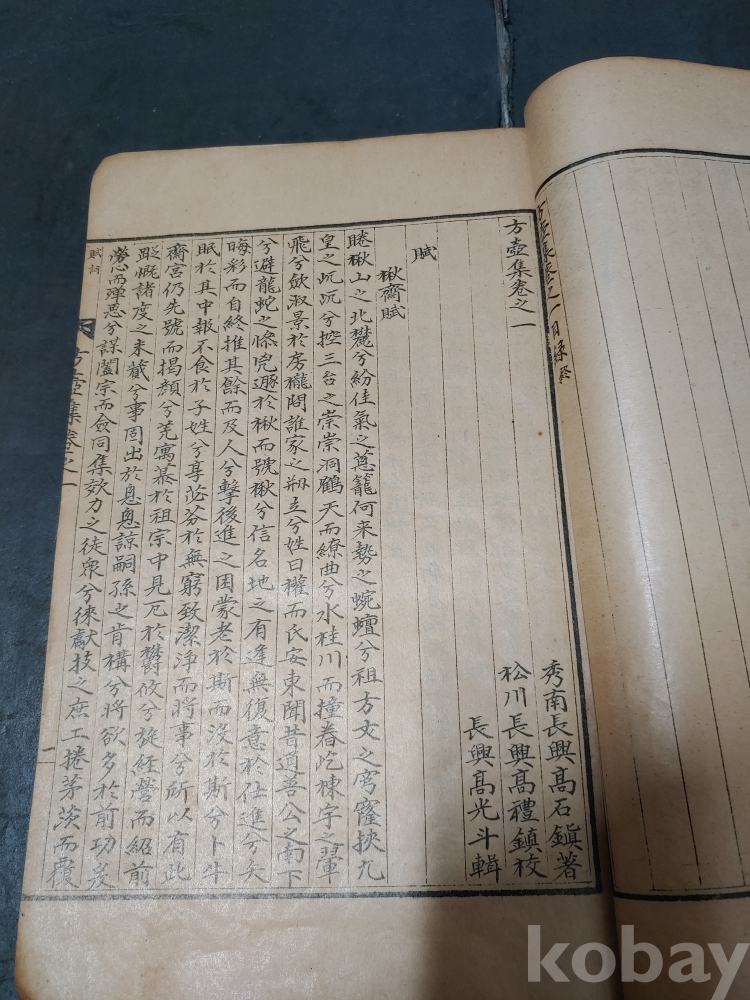 方壺集卷之一目錄終
方壺集卷之一
秀南長興高石鎭著
松川長興高禮鎭校
長興高光斗輯
賦
楸齋賦
睠楸山之北麓兮紛佳氣之蔥籠何来勢之蜿蟺兮祖方丈之穹窿挾九
皇之屹屹兮控三台之崇崇洞鶴天而繚曲兮水桂川而撞舂屹棟宇之翬
飛兮歛淑景於房櫳問誰家之刱立兮姓曰權而氏安東聞昔逍菩公之南下
兮避龍蛇之燹兇遯於楸而號楸兮信名地之有逢無復意於仕進兮矢
晦彩而自終推其餘而及人兮擊後進之困蒙老於斯而沒於斯兮卜牛
眠於其中報不食於子姓兮享苾芬於無窮致潔淨而將事兮所以有此
齋宮仍先號而揭顔兮羌寓慕於祖宗中見厄於欝攸兮旋經營而紹前
蹤慨諸度之未蕆兮事固出於悤悤諒嗣孫之肯構兮將欲多於前功爰
勞心而殫思兮謀闔宗而僉同集效力之徒衆兮徠獻技之庶工捲茅茨而覆
賦詞
方壺集卷之一
一
kobay